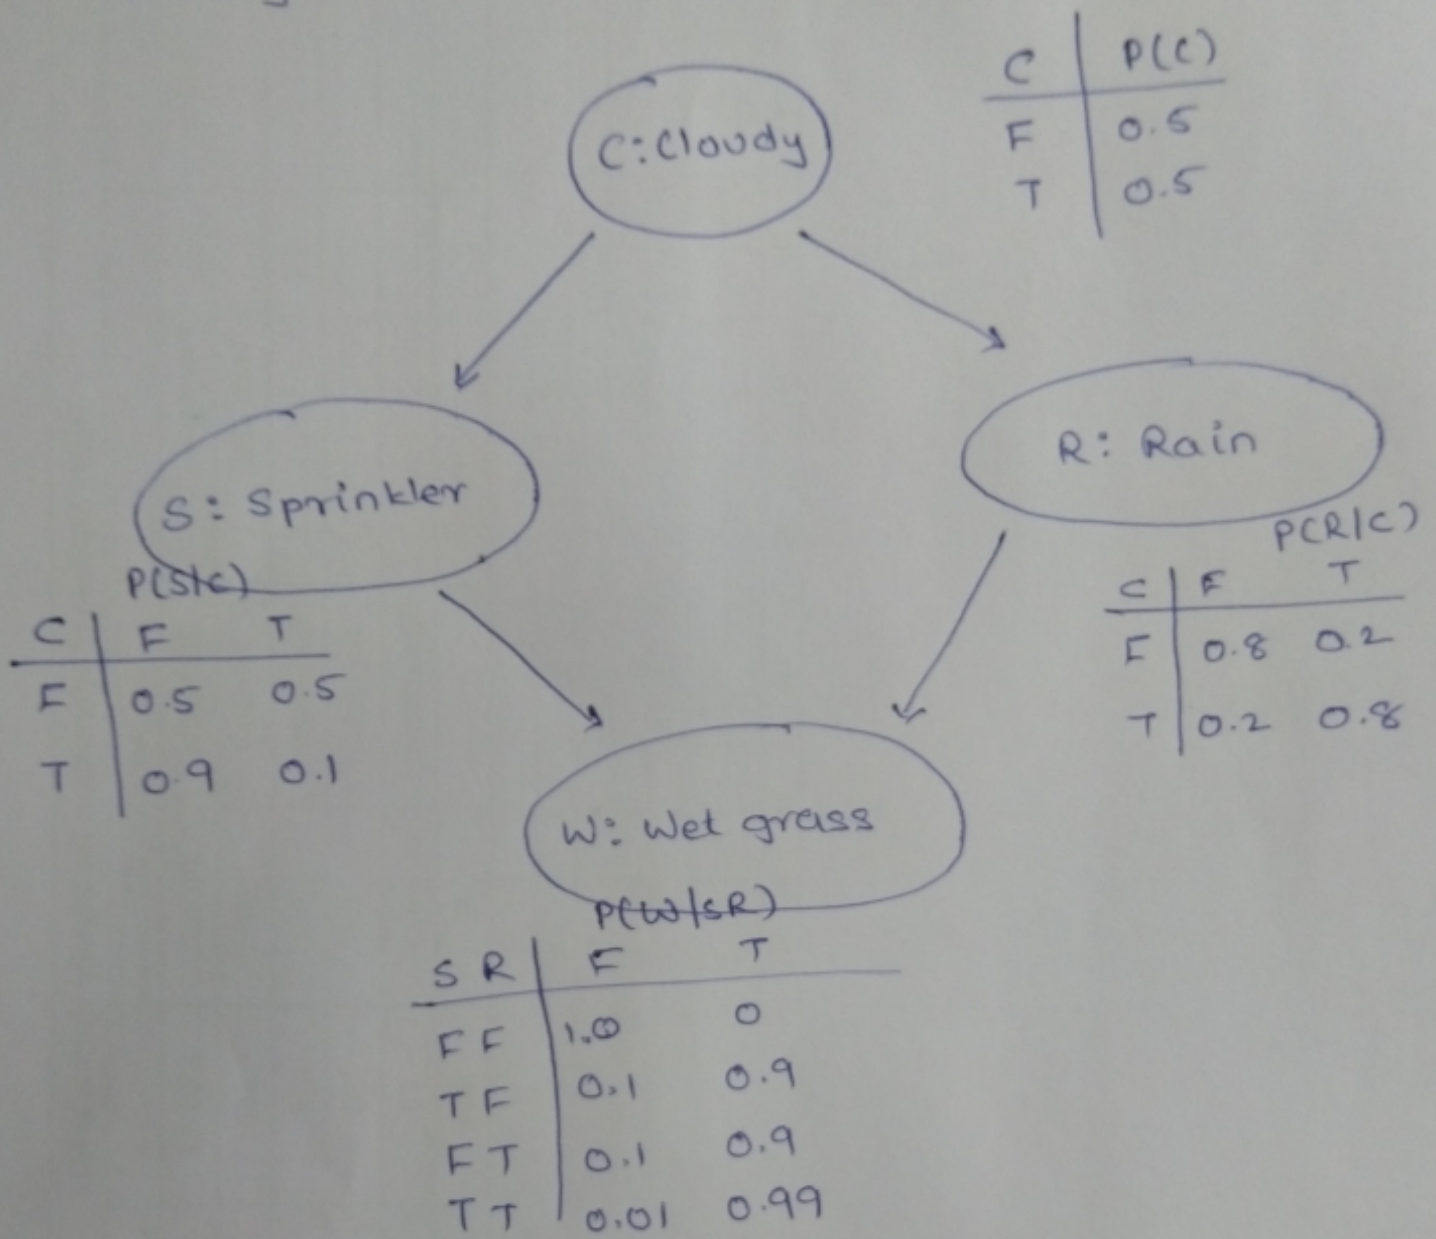 C P(C)
F 0.5
T 0.5
C: Cloudy
S: Sprinkler
P(S/C)
C F T
F 0.5 0.5
T 0.9 0.1
R: Rain
P(R/C)
C F T
F 0.8 0.2
T 0.2 0.8
W: Wet grass
P(W/SR)
S R F T
F F 1.0 0
T F 0.1 0.9
F T 0.1 0.9
T T 0.01 0.99